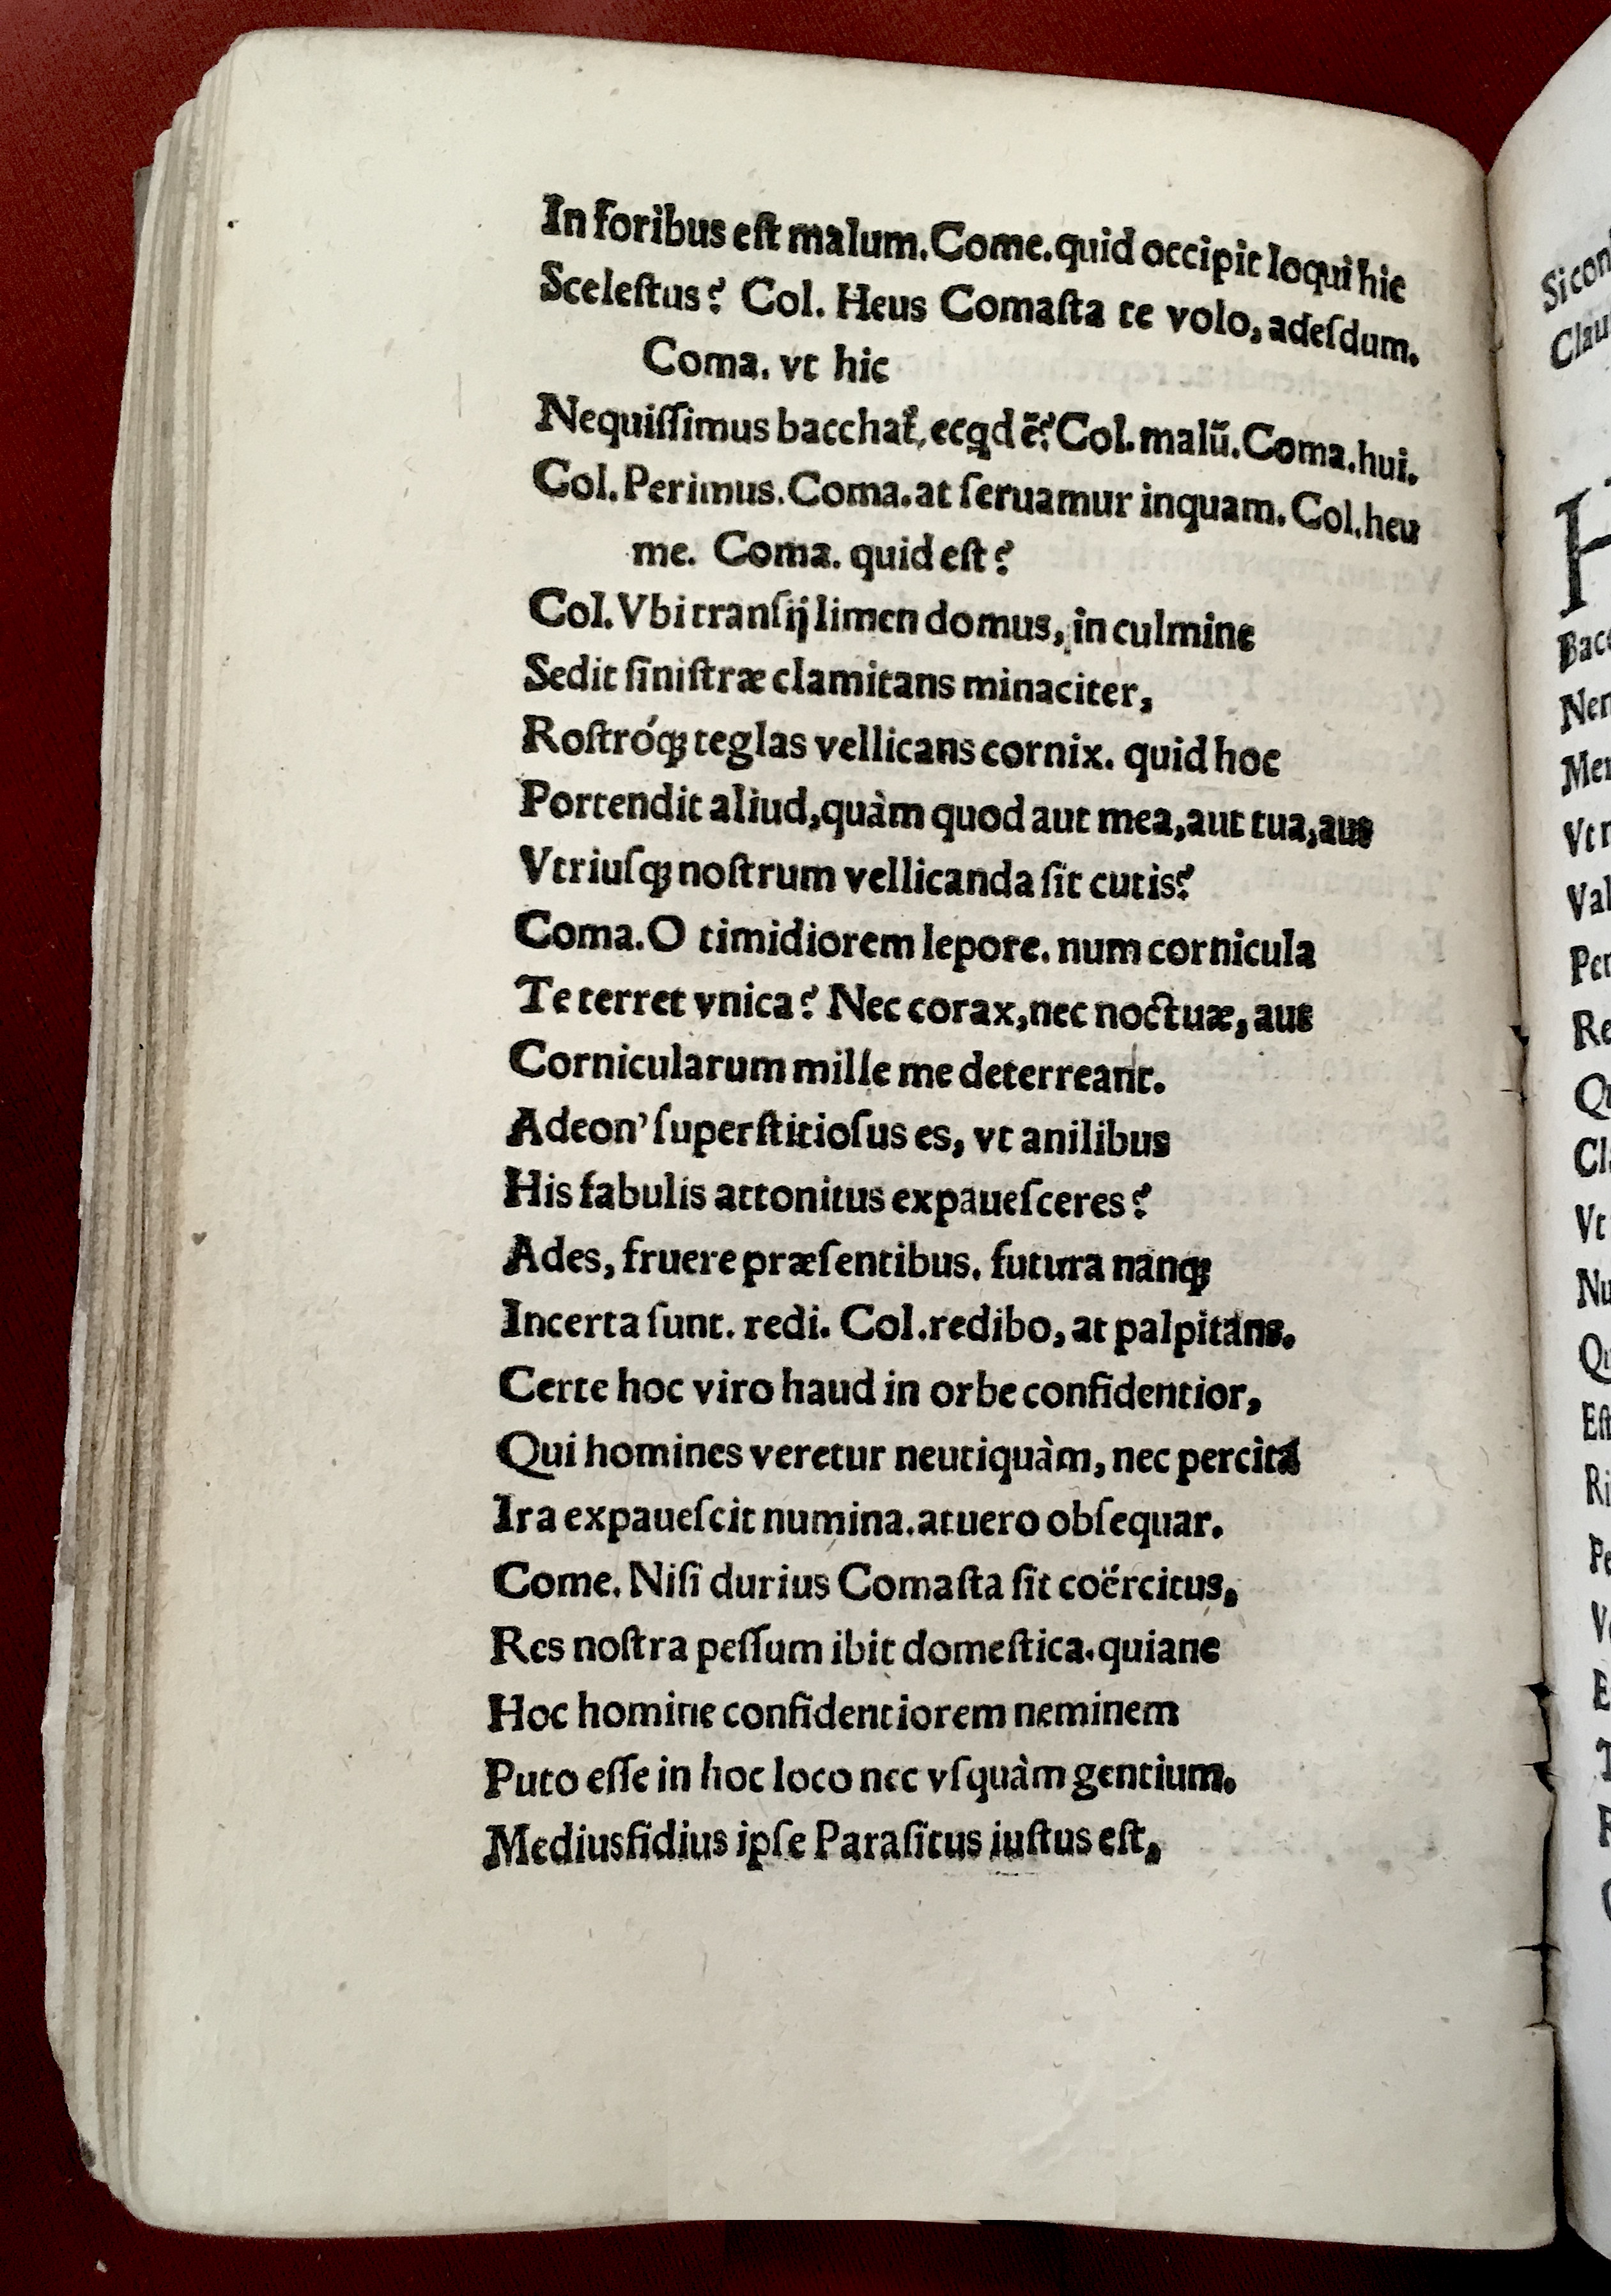 In foribus eſt malum. Come. quid occipit loqui hic
Sceleſtus? Col. Heus Comaſta te volo, adeſdum.
Coma. vt hic
Nequiſſimus bacchat᷑, ecqd ẽ? Col. malũ. Coma. hui.
Col. Perimus. Coma. at ſeruamur inquam. Col. heu
me. Coma. quid eſt?
Col. Vbi tranſij limen domus, in culmine
Sedit ſiniſtræ clamitans minaciter,
Roſtróqꝫ teglas vellicans cornix. quid hoc
Portendit aliud, quàm quod aut mea, aut tua, aut
Vtriuſqꝫ noſtrum vellicanda ſit cutis?
Coma. O timidiorem lepore. num cornicula
Te terret vnica? Nec corax, nec noctuæ, aut
Cornicularum mille me deterreant.
Adeon' ſuperſtitioſus es, vt anilibus
His fabulis attonitus expaueſceres?
Ades, fruere præſentibus. futura nanqꝫ
Incerta ſunt. redi. Col. redibo, at palpitans.
Certe hoc viro haud in orbe confidentior,
Qui homines veretur neutiquàm, nec percita
Ira expaueſcit numina. at uero obſequar.
Come. Niſi durius Comaſta ſit coërcitus,
Res noſtra peſſum ibit domeſtica. quiane
Hoc homine confidentiorem neminem
Puto eſſe in hoc loco nec vſquàm gentium.
Mediusfidius ipſe Paraſitus iuſtus eſt,
Si con
Clau
H
Bacc
Ner
Mer
Vt r
Val
Per
Re
Qu
Cl
Vt
Nu
Qu
Eſt
Ri
Pe